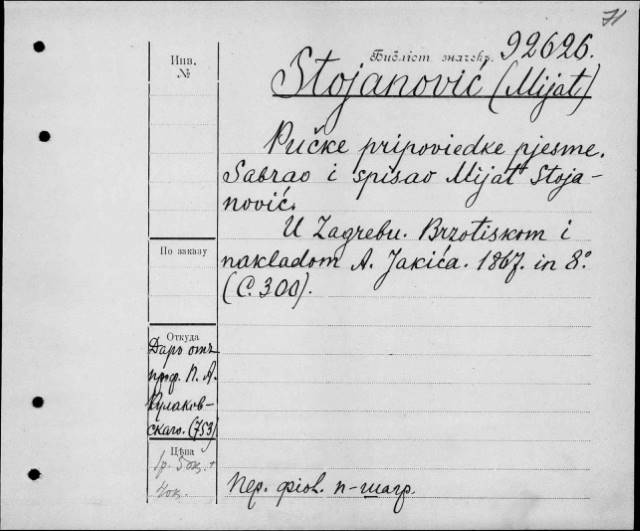 71
Библіот. значекъ. 92626.
Stojanović (Mijat)
Инв.
№
Pučke pripoviedke pjesme.
Sabrao i spisao Mijat Stoja-
nović.
U Zagrebu. Brzotiskom i
nakladom A. Jakića. 1867. in 8°.
(C. 300).
По заказу
Откуда
Даръ отъ
проф. П. А.
Кулаков-
скаго. (753)
Цѣна
Пер. фіол. п-шагр.